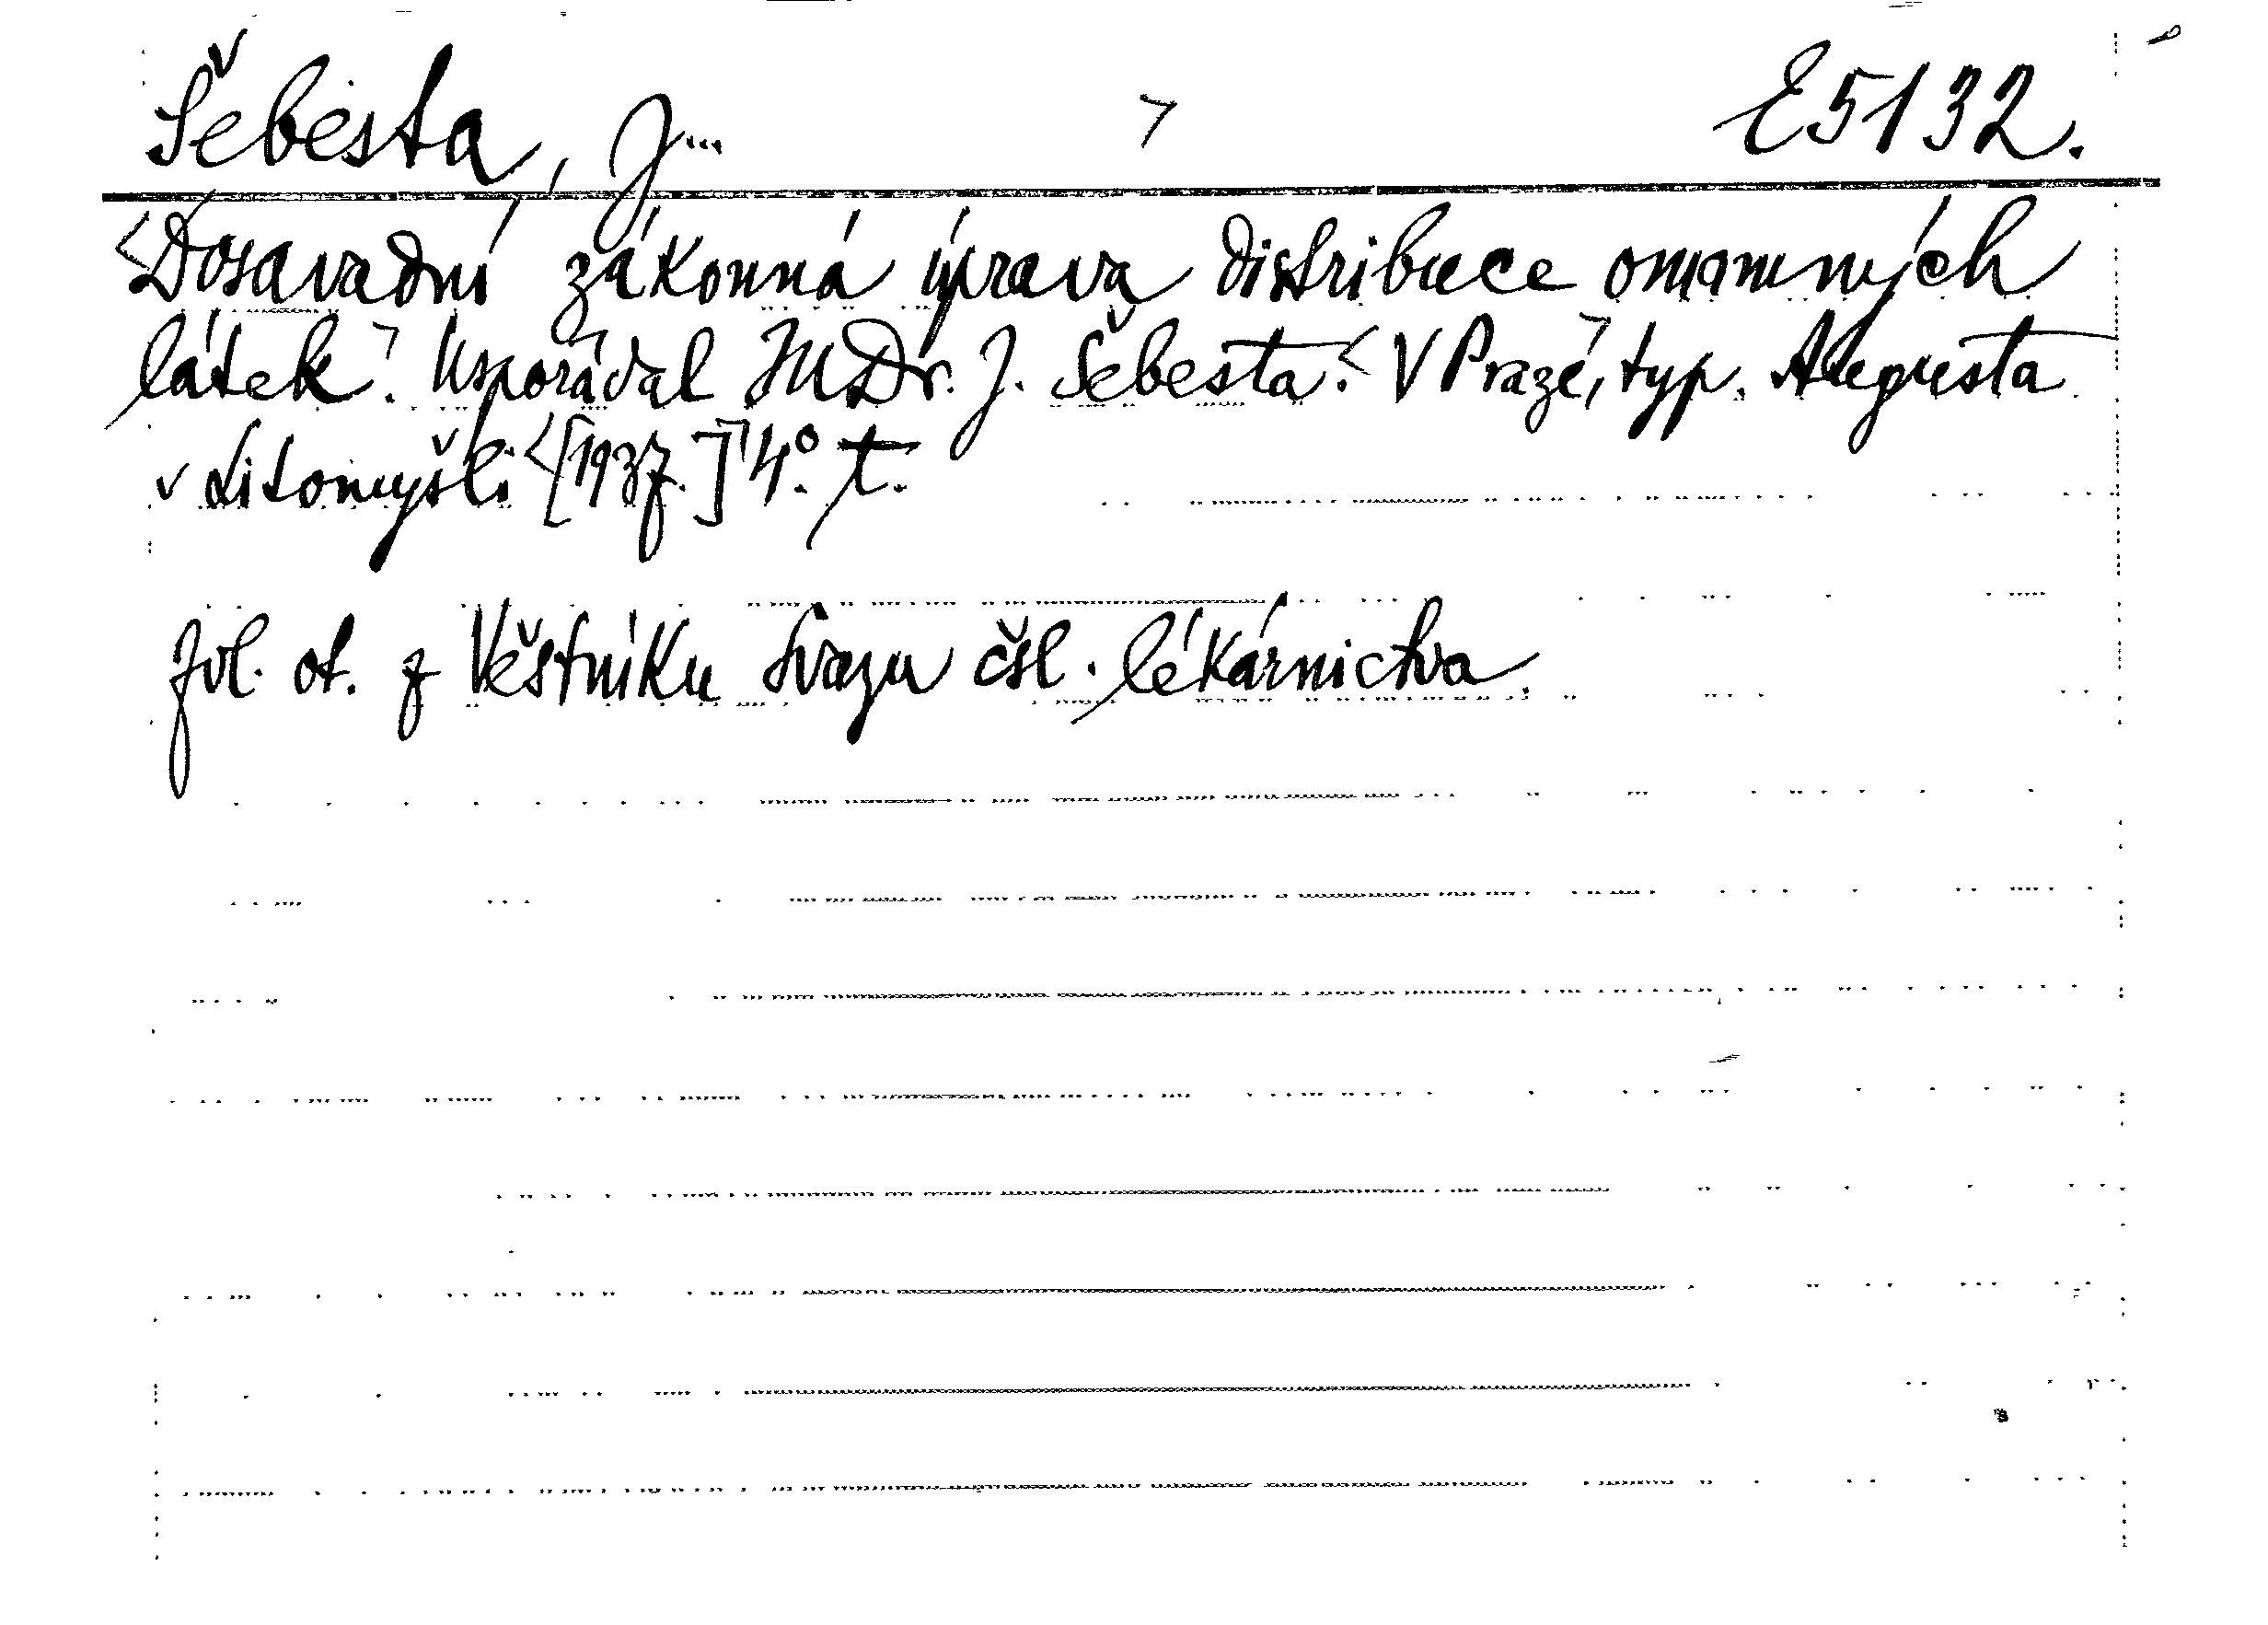 Šebesta, J... E5132.
Dosavadní zákonná úprava distribuce omamných
látek. Uspořádal MUDr. J. Šebesta. V Praze, typ. Augusta
v Litomyšli [1937.] 4°. t.
Zvl. ot. z Věstníku Svazu čsl. lékárnictva.